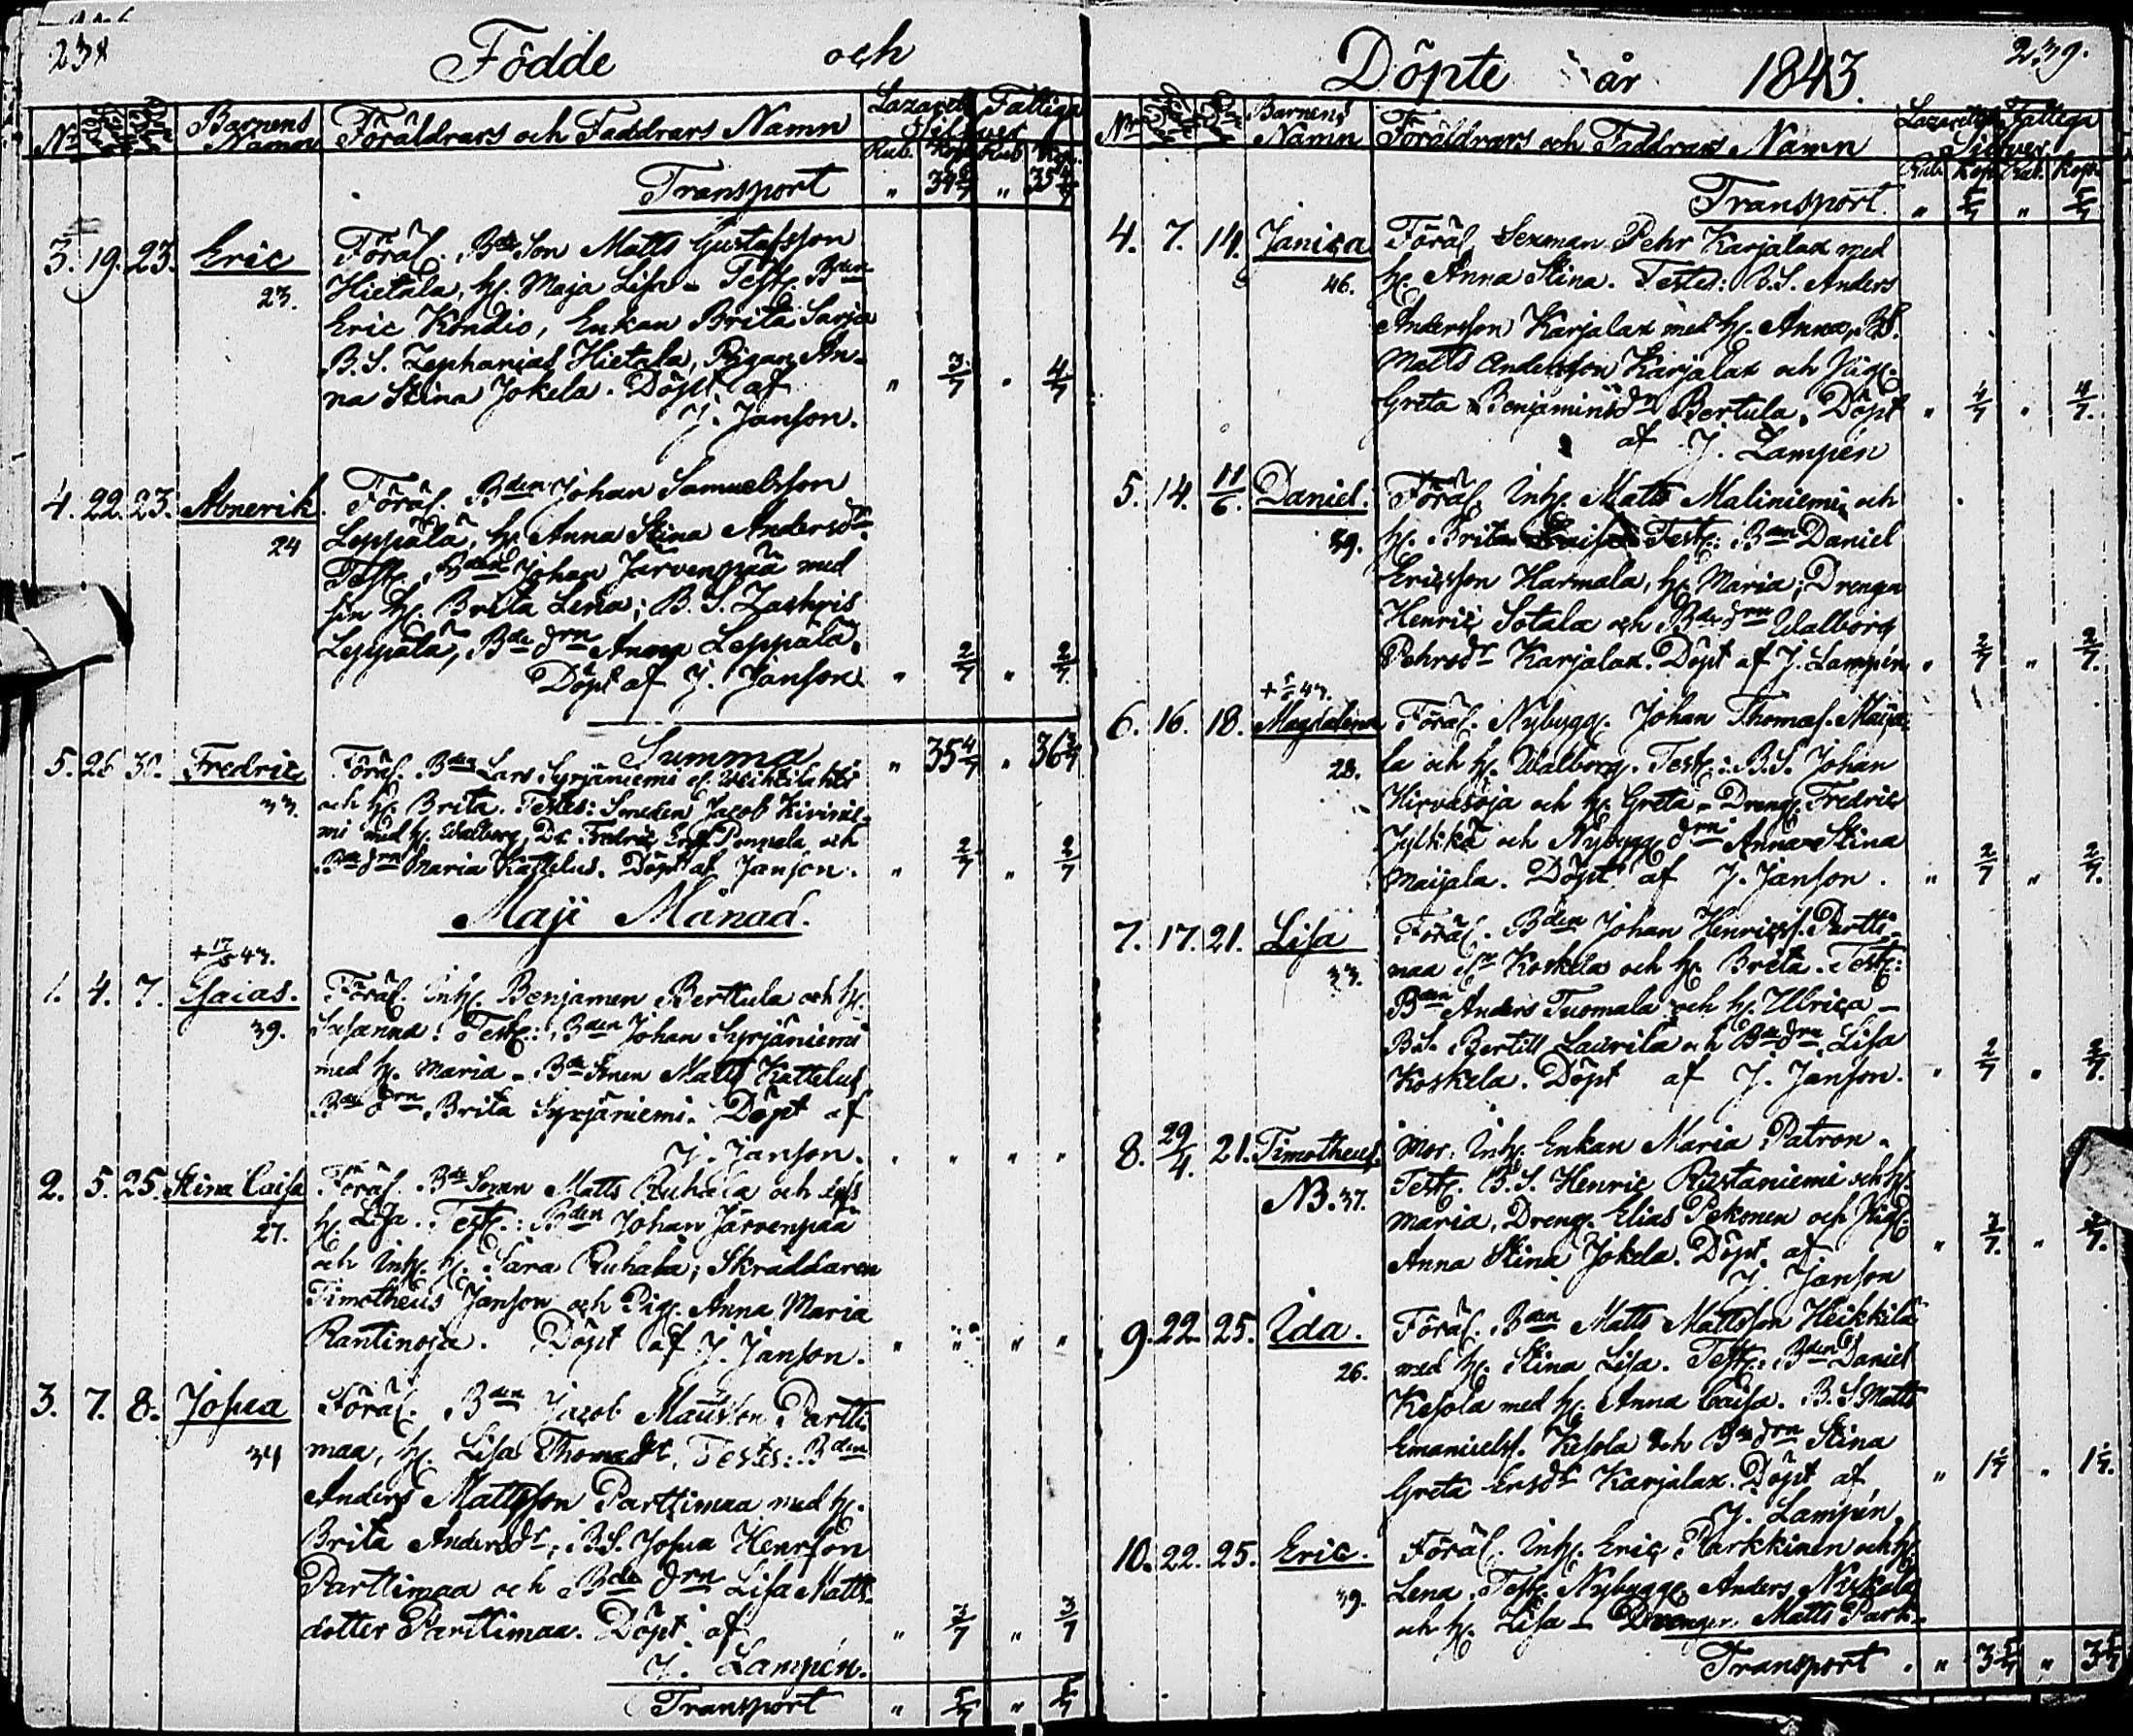 238
Födde och
No Barnens Namn Föräldrars och Faddrars Namn Lazaretts Fattiga
Silfver
Rub. Kop. Rub. Kop.
Transport " 34 " 35
3. 19. 23. Eric Föräl. Bde Son Matts Gustafsson
23. Hietala, H. Maja Lisa - Test. Bden
Eric Kondio, Enkan Brita Sarja
B.S. Zephanias Hietala, Pigan An-
na Stina Jokela. Döpt af " 3/7 " 4/7
J. Janson.
4. 22. 23. Abnerik. Föräl. Bden Johan Samuelsson
24 Leppälä, H. Anna Stina Andersdr
Test. Bden Johan Järvenpää med
sin H. Brita Lena; B.S. Zachris
Leppälä, Bde drn Anna Leppälä. " 2/7 " 2/7
Döpt af J. Janson
Summa " 35 4/7 " 36 3/7
5. 26 30. Fredric Föräl. Bden Lars Syrjäniemi
33. och H. Brita. Testes: Smeden Jacob Kivinie-
mi med H. Walborg, Dr. Fredric Pennala och
Bde drn Maria Kattelus. Döpt af Janson. " 2/7 " 2/7
Maji Månad.
+ 17/5 43.
1. 4. 7. Esaias. Föräl. Inh. Benjamen Berttula och H.
39. Susanna. Test.: Bden Johan Syrjäniemi
med H. Maria - Bde Sonen Matts Kattelus
Bde drn Brita Syrjäniemi. Döpt af
J. Janson. " " " "
2. 5. 25. Stina Caisa Föräl. Bde Sonen Matts Ruhala och
27. H. Lisa. Test.: Bden Johan Järvenpää
och Inh. H. Sara Ruhala; Skräddaren
Timotheus Janson och Pig. Anna Maria
Rantinoja. Döpt af J. Janson. " " " "
3. 7. 8. Josua Föräl. Bden Jacob Mattsson Partti-
34 maa, H. Lisa Thomasdr. Testes: Bden
Anders Mattsson Parttimaa med H.
Brita Andersdr; B.S. Josua Henrsson
Parttimaa och Bde drn Lisa Matts-
dotter Parttimaa. Döpt af " 3/7 " 3/7
J. Lampén.
Transport " 5/7 " 5/7
239.
Döpte år 1843.
No Barnens Namn Föräldrars och Faddrars Namn Lazaretts Fattiga
Silfver
Rub. Kop. Rub. Kop.
Transport. " 5/7 " 5/7
4. 7. 14. Janica Föräl. Sexman Pehr Karjalax med
46. H. Anna Stina. Testes: B.S. Anders
Andersson Karjalax med H. Anna, B.S.
Matts Andersson Karjalax och Pig.
Greta Benjaminsdr Bertula. Döpt " 4/7 " 4/7.
af J. Lampén
5. 14. 11/6. Daniel. Föräl. Inh. Matts Maliniemi och
39. H. Brita Test.: Bden Daniel
Ericsson Harmala, H. Maria; Drengen
Henric Sotala och Bde drn Walborg
Pehrsdr Karjalax. Döpt af J. Lampén " 2/7 " 2/7.
+ 43.
6. 16. 18. Magdalena Föräl. Nybygg. Johan Thomas. Maija-
28. la och H. Walborg. Test.: B.S. Johan
Hirvasoja och H. Greta - Dreng. Fredric
Jylkkä och Nybygg. drn Anna Stina
Maijala. Döpt af J. Janson. " 2/7 " 2/7.
7. 17. 21. Lisa Föräl. Bden Johan Henricss. Partti-
33. maa Koskela och H. Brita. Test.:
Bden Anders Tuomala och H. Ulrica -
B.S. Bertill Laurila och Bde drn Lisa
Koskela. Döpt af J. Janson. " 2/7 " 2/7.
8. 29/4. 21. Timotheus. Mor: Inh. Enkan Maria Patron.
NB. 37. Test. B.S. Henric Rustaniemi och H.
Maria, Dreng. Elias Pekonen och Pig.
Anna Stina Jokela. Döpt af " 2/7. " 2/7.
J. Janson
9. 22. 25. Ida. Föräl. Bden Matts Mattsson Heikkilä
26. med H. Stina Lisa. Test.: Bden Daniel
Kesola med H. Anna Caisa. B.S. Matts
Emanuelss. Kesola och Bde drn Stina
Greta Ersdr Karjalax. Döpt af " 1 " 1
J. Lampén.
10. 22. 25. Eric. Föräl. Inh. Eric Parkkinen och H.
39. Lena. Test. Nybygg. Anders Niskala
och H. Lisa - Drengen Matts Park-
Transport " 3 " 3